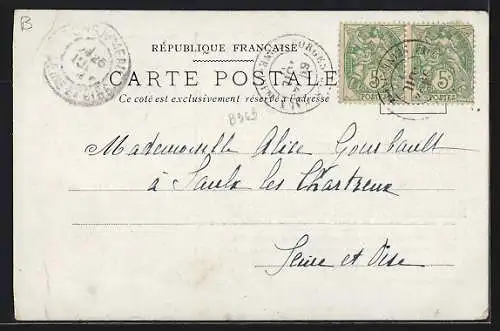 B
RÉPUBLIQUE FRANÇAISE
CARTE POSTALE
Ce côté est exclusivement réservé à l'adresse
5 5
POSTES
B965
Mademoiselle Alice Gourbault
à Saulx les Chartreux
Seine et Oise